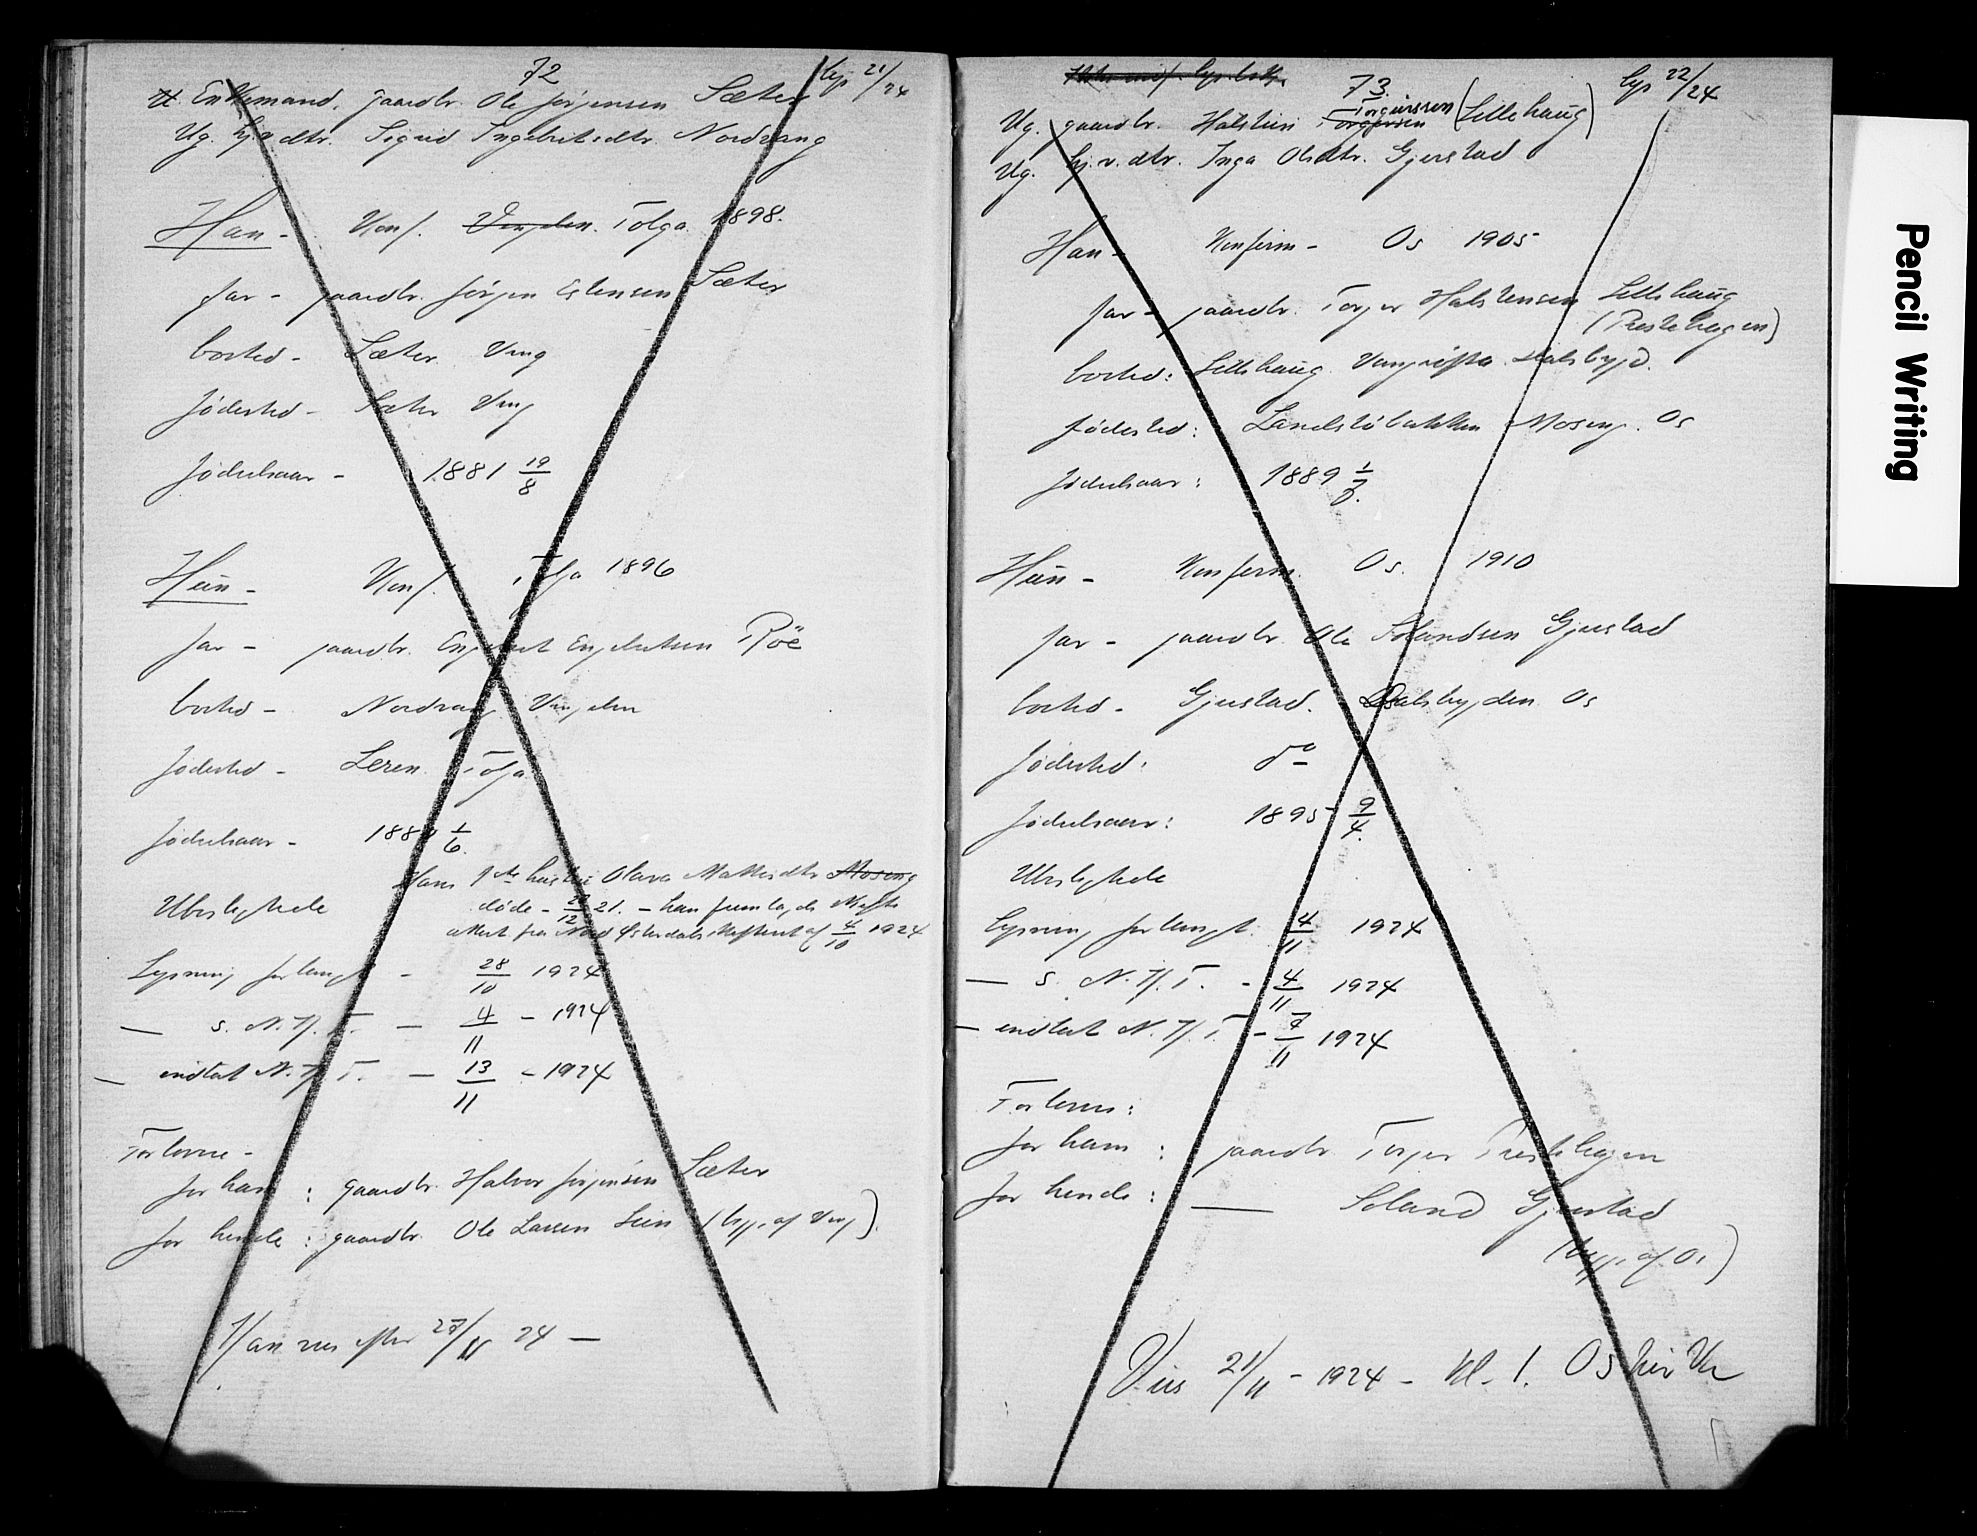 72
lys 21/24
Enkemand, gaardbr. Ole Jørgensen Sæter
Ug. hjv. dtr. Sigrid Ingebritsdtr. Nordvang
Han - Konf. Vingelen. Tolga 1898.
far - gaardbr. Jørgen Estensen Sæter
bosted - Sæter Ving
fødested - Sæter Ving
fødselsaar - 1881 19/8
Hun - Konf. Tolga 1896
far - gaardbr. Engebret Engebretsen Røe
bosted - Nordvang Vingelen
fødested - Leren Tolga
fødselsaar - 188 1/6
Hans 1ste hustru Olava Mathisdtr Moseng
Ubeslegtede døde - 12 21. - han fremlagde skifte
attest fra Nord Østerdals skifteret af 4/10 1924
Lysning forlangt - 28/10 1924
— s. N. H. T. — 4/11 - 1924
— indtat N. H. T. — 13/11 - 1924
Forlovere -
for ham : gaardbr. Halvor Jørgensen Sæter
for hende : gaardbr. Ole Larsen Lien (bygs. af Ving)
Kan vies efter 27/11 24 —
73.
lys 22/24
Torgeirssen
Ug. gaardbr. Halstein Torgersen (Lillehaug)
Ug. hj. v. dtr. Inga Olsdtr. Gjerstad
Han - Konfirm - Os 1905
far - gaardbr. Torger Halstensen Lillehaug
(Prestehagen)
bosted: Lillehaug Vangrøfta Dalsbygd.
fødested: Landstøbakken Moseng. Os
fødselsaar: 1889 1/7.
Hun - Konfirm. Os. 1910
far - gaardbr. Ole Solandsen Gjerstad
bosted - Gjerstad. Dalsbygden Os
fødested: do
fødselsaar: 1895 9/4.
Ubeslegtede
Lysning forlangt. 4/11 1924
— s. N. H. T. - 4/11 1924
— indtat N. H. T. - 7/11 1924
Forlovere:
for ham : gaardbr Torger Prestehagen
for hende : — Soland Gjerstad
(bygs. af Os)
Vies 21/11 - 1924 - kl. 1. Os kirke
Pencil Writing